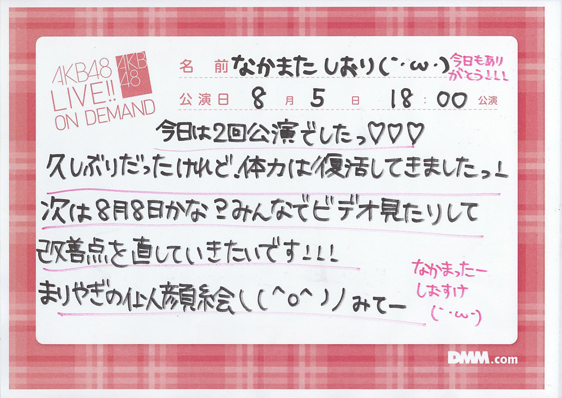 AKB48
LIVE!!
ON DEMAND
AKB
48
名前 なかまた しおり(´･ω･)
今日もあり
がとう!!!
公演日 8月5日 18:00公演
今日は2回公演でしたっ♡♡♡
久しぶりだったけれど、体力は復活してきましたっ!
次は8月8日かな?みんなでビデオ見たりして
改善点を直していきたいです!!!
まりやぎの仙人顔絵((^o^)ノみてー
なかまったー
しおすけ
(´･ω･)
DMM.com